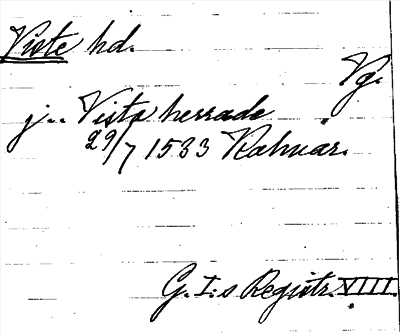 Viste hd.
Vg.
j.. Vista herrade
29/7 1533 Kalmar.
G. I:s Registr. VIII.